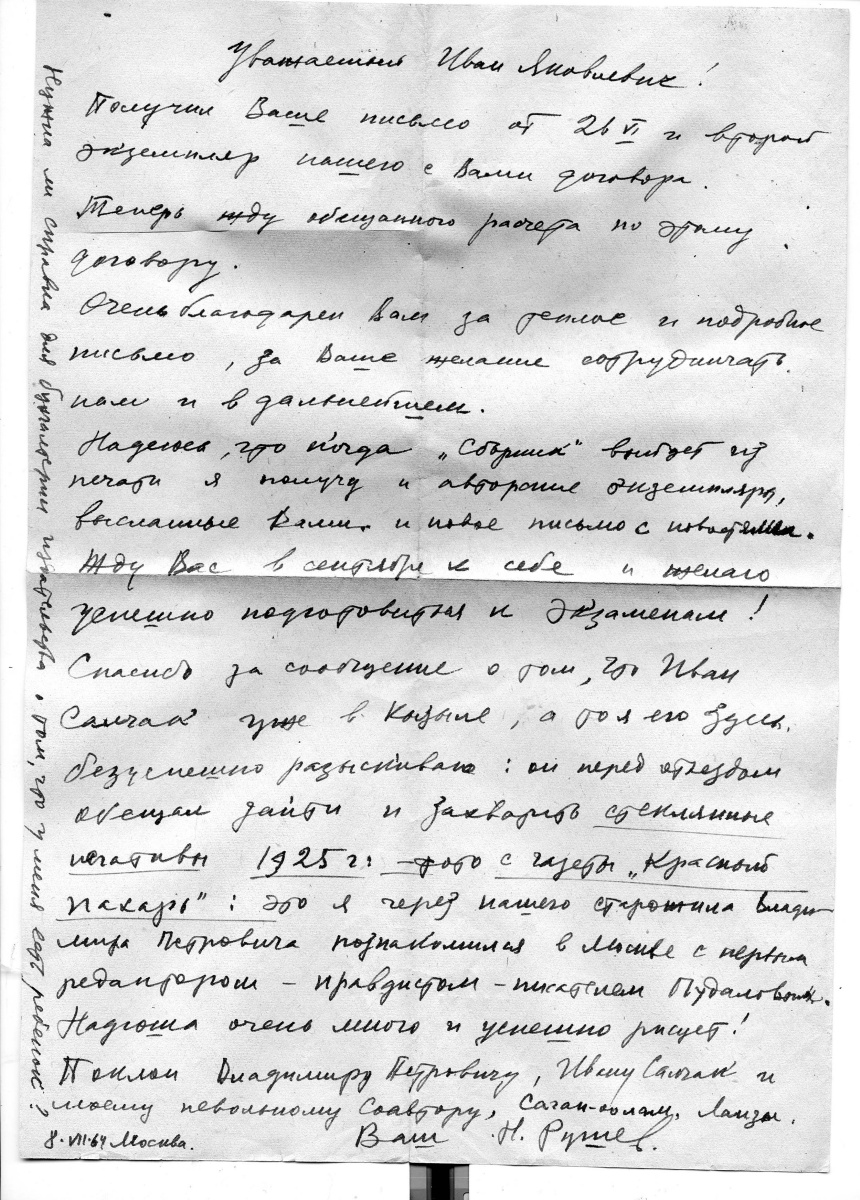 Уважаемый Иван Яковлевич!
Получил Ваше письмо от 26 VI и второй
экземпляр нашего с Вами договора.
Теперь жду обещанного расчета по этому
договору.
Очень благодарен Вам за теплое и подробное
письмо, за Ваше желание сотрудничать
нам и в дальнейшем.
Надеюсь, что когда „Сборник“ выйдет из
печати я получу и авторские экземпляры,
высланные Вами и новое письмо с новостями.
Жду Вас в сентябре к себе и желаю
успешно подготовиться к экзаменам!
Спасибо за сообщение о том, что Иван
Салчак уже в Кызыле, а то я его здесь
безуспешно разыскиваю: он перед отъездом
обещал зайти и захватить стеклянные
негативы 1925 г: — фото с газеты „Красный
пахарь“: это я через нашего старожила Влади-
мира Петровича познакомился в Москве с первым
редактором – правдистом – писателем Пудаловым.
Надюша очень много и успешно рисует!
Поклон Владимиру Петровичу, Ивану Салчак и
моему невольному соавтору,
Ваш Н. Рушев.
8.VII.64 Москва.
Нужна ли справка для бухгалтерии издательства о том, что у меня есть ребенок?